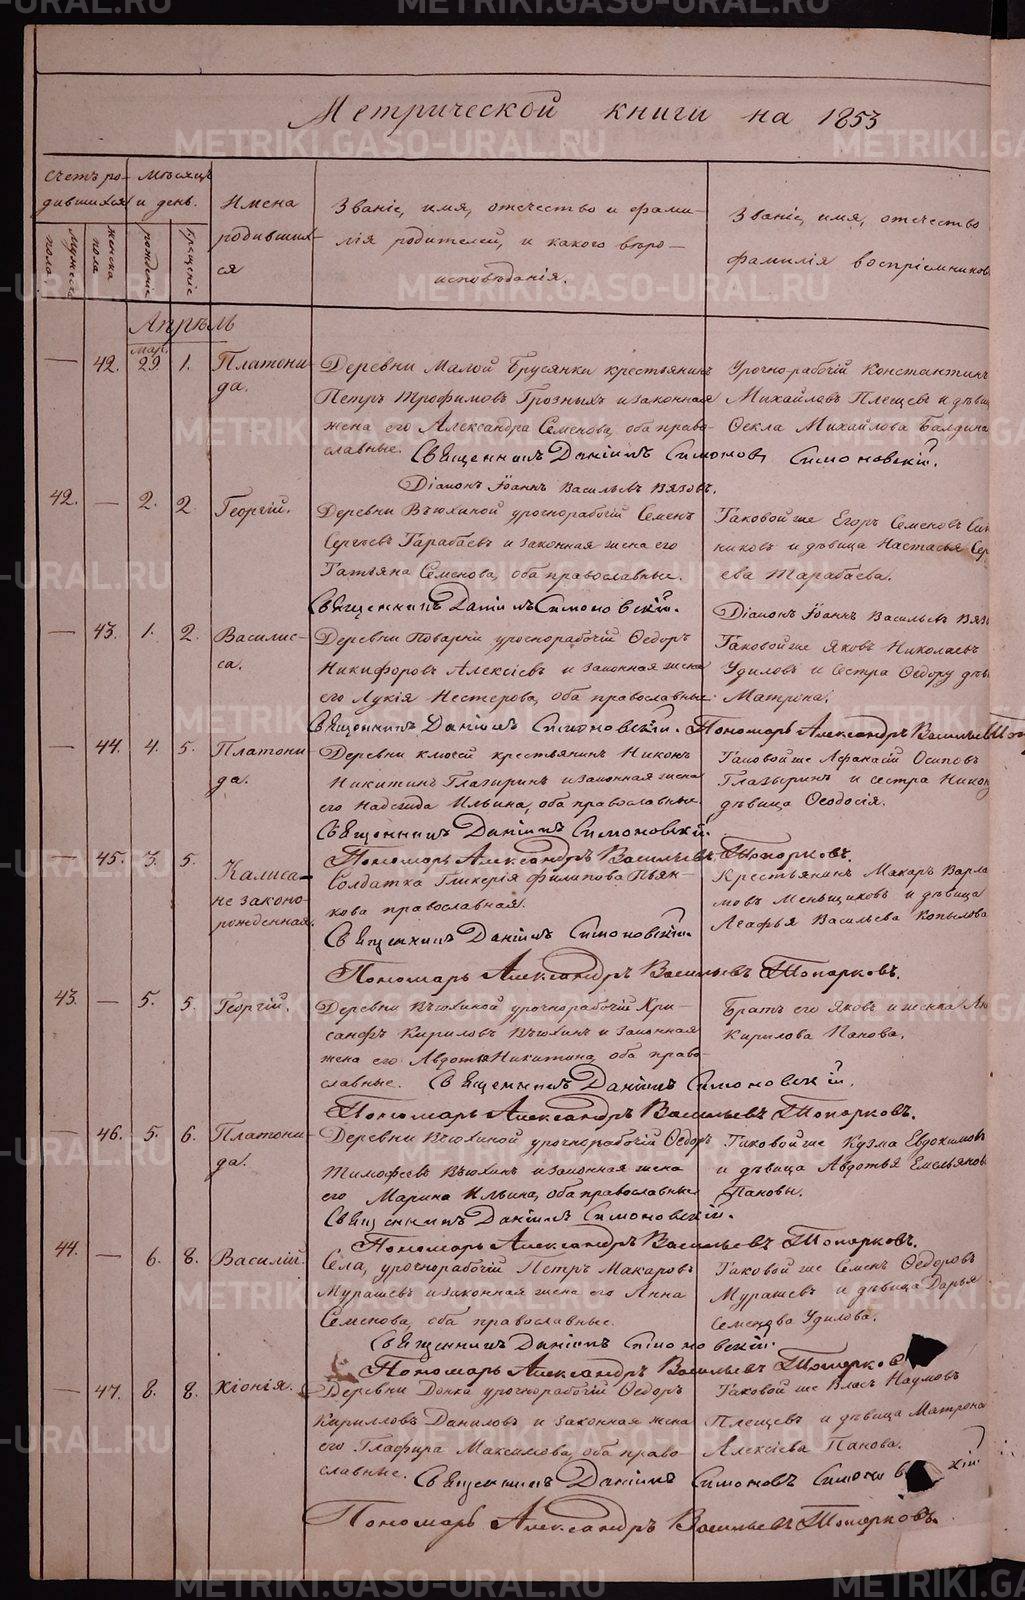 Метрической книги на 1853
Счетъ ро-
дившихся
Мѣсяцъ
и день.
Имена
родивших-
ся
Званіе, имя, отечество и фами-
лія родителей, и какого вѣро-
исповѣданія.
Званіе, имя, отечество
фамилія воспріемниковъ
Мужеска
пола
Женска
пола
рожденіе
крещеніе
Апрѣль
— 42. Мар. 29. 1. Платони-
да.
Деревни Малой Брусянки крестьянинъ
Петръ Трофимовъ Грозныхъ и законная
жена его Александра Семенова, оба право-
славные. Священникъ Даніилъ Симоновъ Симоновскій.
Діаконъ Іоаннъ Васильевъ Вязовъ.
Урочнорабочій Константинъ
Михайловъ Плещевъ и дѣвица
Ѳекла Михайлова Балдина
42. — 2. 2. Георгій.
Деревни Вьюхиной урочнорабочій Семенъ
Сергѣевъ Тарабаевъ и законная жена его
Татьяна Семенова, оба православные.
Священникъ Даніилъ Симоновскій.
Таковой же Егоръ Семеновъ
никовъ и дѣвица Настасья Сер
ева Тарабаева.
Діаконъ Іоаннъ Васильевъ Вязо
— 43. 1. 2. Василис-
са.
Деревни Поварни урочнорабочій Ѳедоръ
Никифоровъ Алексіевъ и законная жена
его Лукія Нестерова, оба православные.
Священникъ Даніилъ Симоновскій. Пономарь Александръ Васильевъ
Таковой же Яковъ Николаевъ
Удиловъ и сестра Ѳедору дѣв
Матрона.
— 44. 4. 5. Платони
да.
Деревни Ключей крестьянинъ Никонъ
Никитинъ Глазыринъ и законная жена
его Надежда Ильина, оба православные.
Священникъ Даніилъ Симоновскій.
Пономарь Александръ Васильевъ Топорковъ.
Таковой же Афанасій Осиповъ
Глазыринъ и сестра Никон
дѣвица Ѳеодосія.
— 45. 3. 5. Калиса-
незаконо-
рожденная.
Солдатка Гликерія Филипова Пьян-
кова православная.
Священникъ Даніилъ Симоновскій.
Пономарь Александръ Васильевъ Топорковъ.
Крестьянинъ Макаръ Варла
мовъ Меньщиковъ и дѣвица
Агафья Васильева Копылова
43. — 5. 5. Георгій.
Деревни Вьюхиной урочнорабочій Хри-
санфъ Кириловъ Вьюхинъ и законная
жена его Авдотья Никитина, оба право-
славные. Священникъ Даніилъ Симоновскій.
Пономарь Александръ Васильевъ Топорковъ.
Братъ его Яковъ и женка
Кирилова Панова.
— 46. 5. 6. Платони-
да.
Деревни Вьюхиной урочнорабочій Ѳедоръ
Тимофеевъ Вьюхинъ и законная жена
его Марина Ильина, оба православные
Священникъ Даніилъ Симоновскій.
Пономарь Александръ Васильевъ Топорковъ.
Таковой же Кузма Евдокимовъ
и дѣвица Авдотья Емельянов
Пановы.
44. — 6. 8. Василій.
Села, урочнорабочій Петръ Макаровъ
Мурашевъ и законная жена его Анна
Семенова, оба православные.
Священникъ Даніилъ Симоновскій.
Пономарь Александръ Васильевъ Топорков
Таковой же Семенъ Ѳедоровъ
Мурашевъ и дѣвица Дарья
Семенова Удилова.
— 47. 8. 8. Хіонія.
Деревни Донки урочнорабочій Ѳедоръ
Кирилловъ Даниловъ и законная жена
его Глафира Максимова, оба право-
славные. Священникъ Даніилъ Симоновъ Симоновскій
Пономарь Александръ Васильевъ Топорковъ.
Таковой же Власъ Наумовъ
Плещевъ и дѣвица Матрона
Алексіева Панова.
METRIKI.GASO-URAL.RU